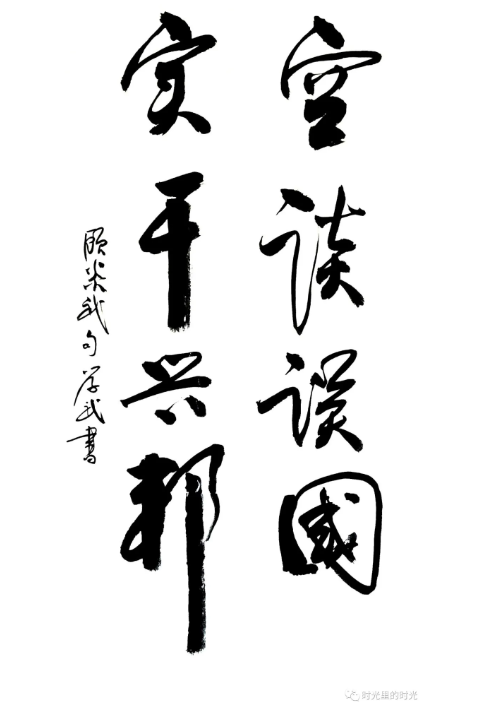 空谈误國
实干兴邦
顾炎武句 学武書
时光里的时光